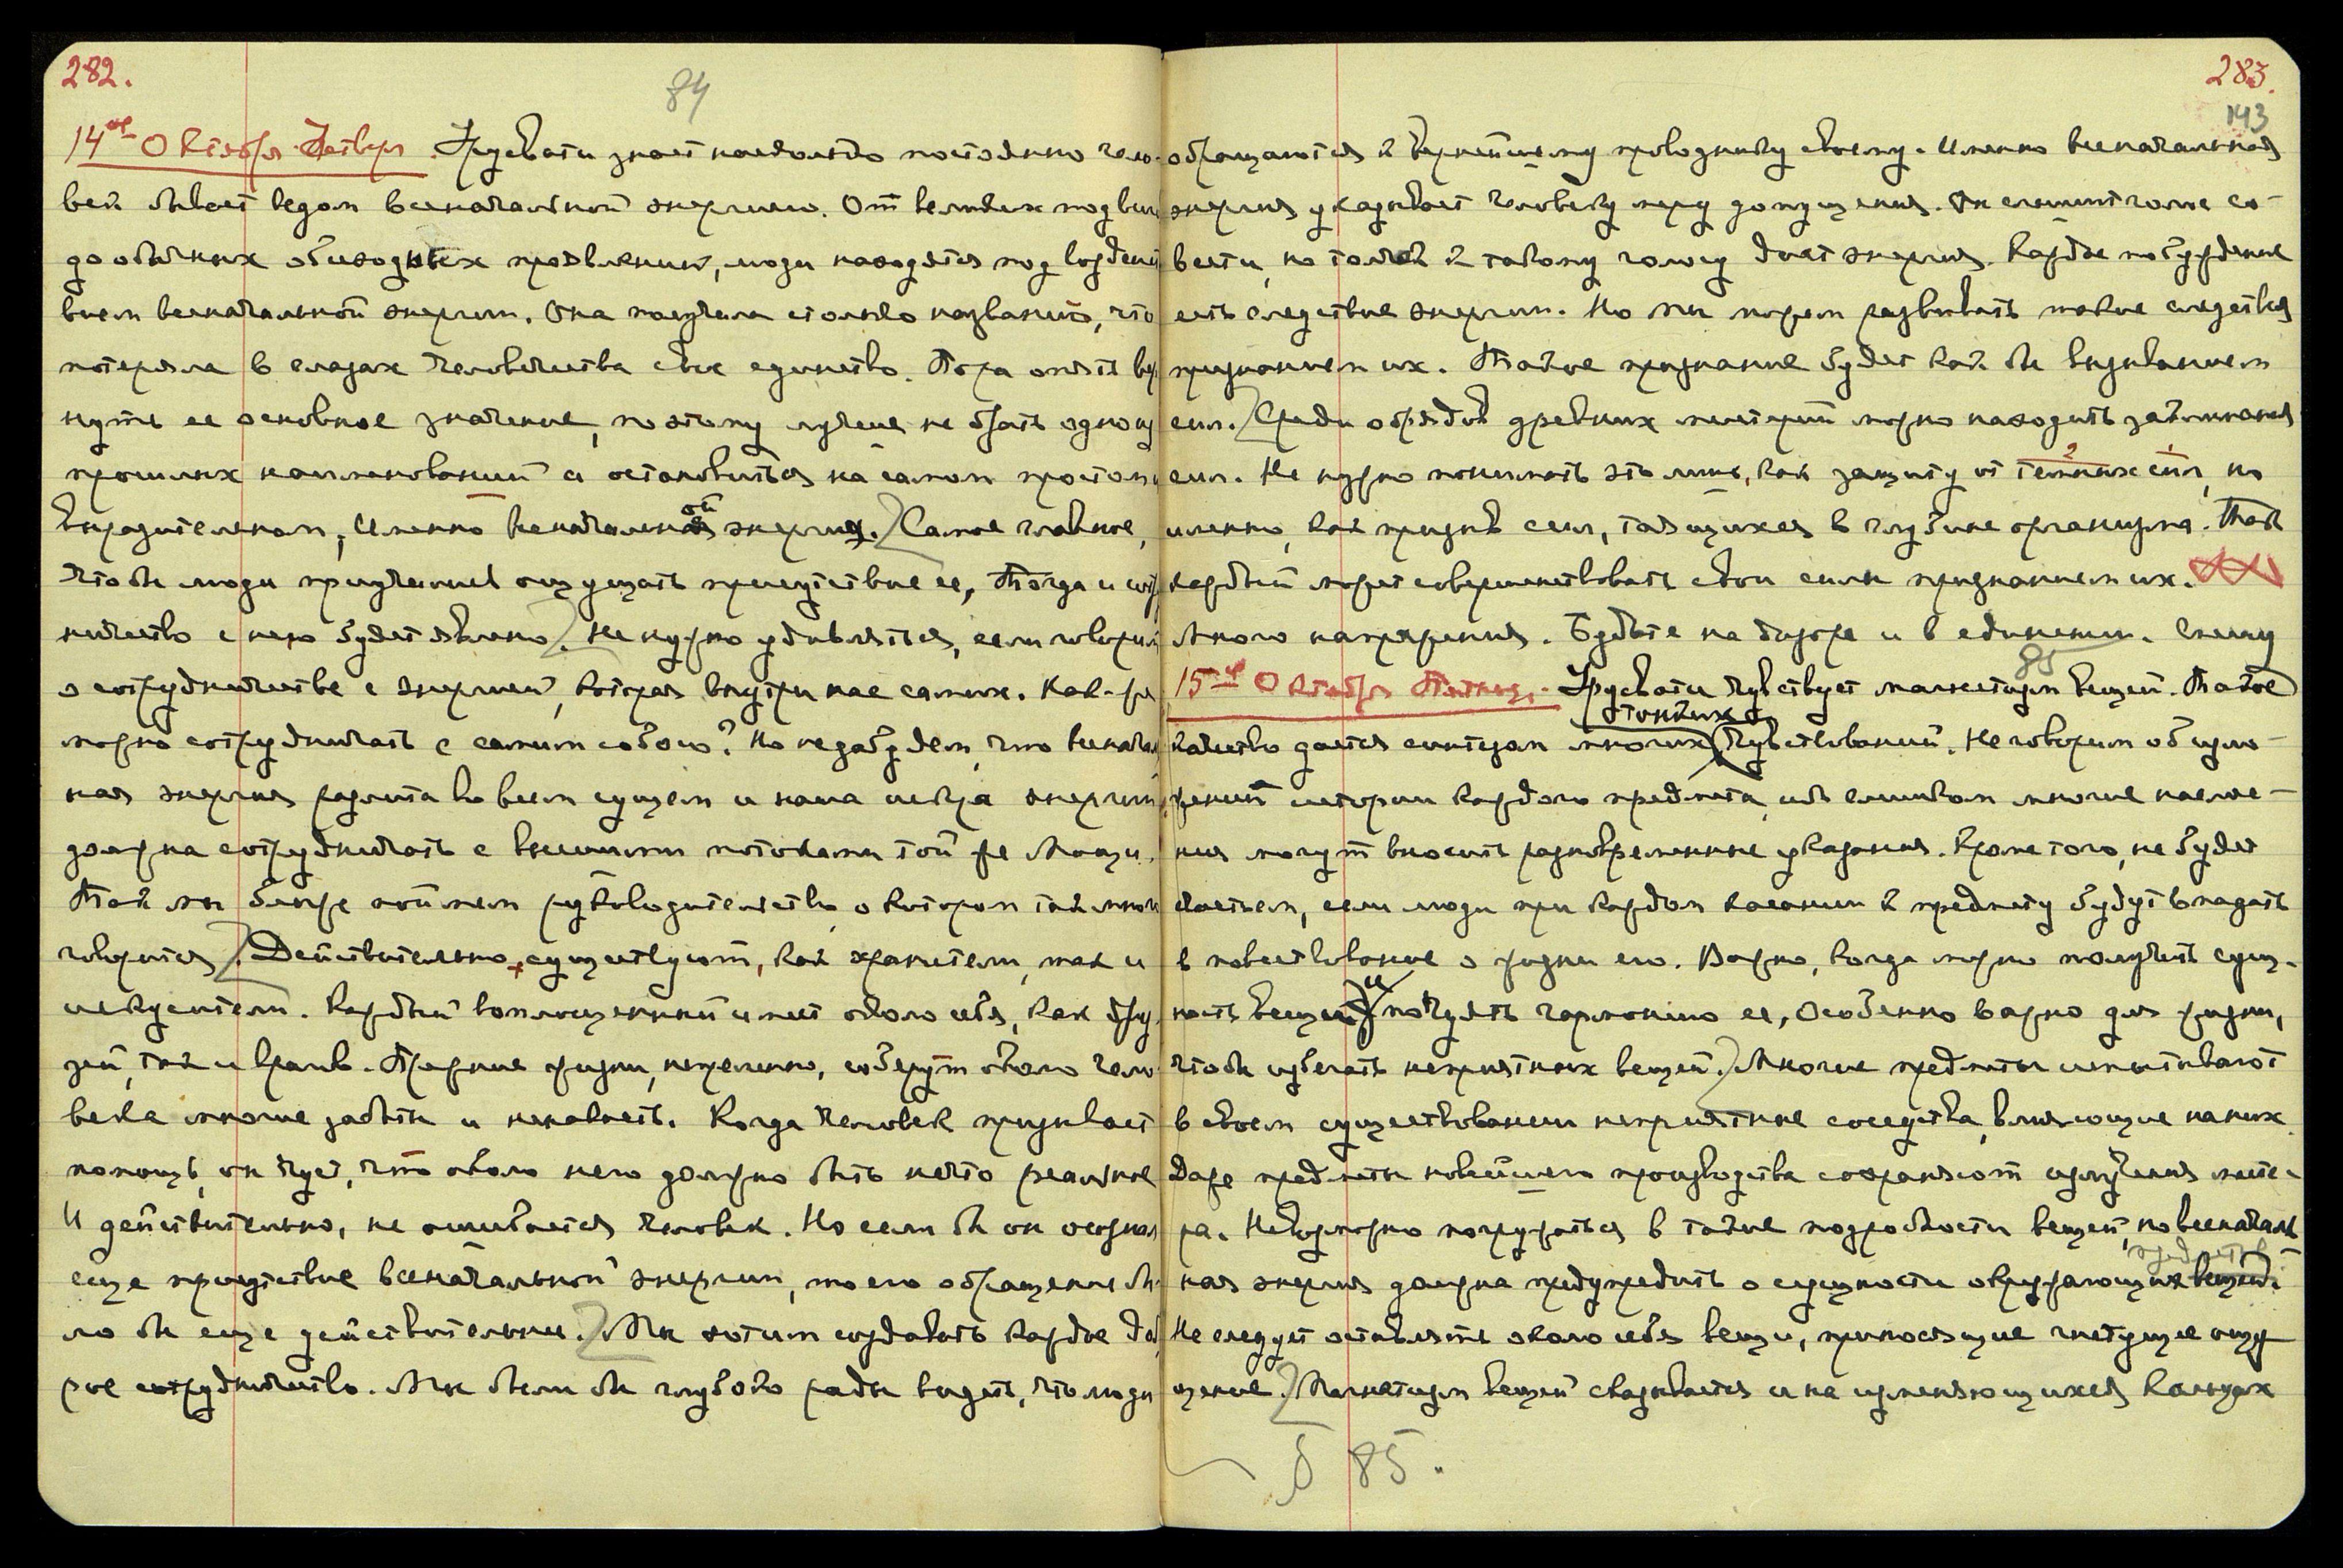 282.
84
14ое Октября Четверг. Урусвати знает насколько постоянно чело-
век бывает ведом всеначальной энергиею. От великих подвиго
до обычных обиходных проявлений, люди находятся под воздейст
вием всеначальной энергии. Она получила столько названий, что
потеряла в глазах человечества свое единство. Пора опять вер
нуть ее основное значение, поэтому лучше не брать одно из
прошлых наименований а остановиться на самом простом и
выразительном, Именно всеначальной энергии. Самое главное,
чтобы люди приучались ощущать присутствие ее, Тогда и сотр
ничество с нею будет явлено. Не нужно удивляться, если говорим
о сотрудничестве с энергией, которая внутри нас самих. Как-же
можно сотрудничать с самим собою? Но не забудем, что всеначаль
ная энергия разлита во всем сущем и наша искра энергии
должна сотрудничать с высшими потоками той же Мощи.
Так мы ближе поймем руководительство, о котором так много
говорится. Действительно, существуют, как хранители, так и
искусители. Каждый воплощенный имеет около себя, как дру-
зей, так и врагов. Прежние жизни, непременно, соберут около чело-
века многие заботы и ненависть. Когда человек призывает
помощь, он чует, что около него должно быть нечто реальное
И действительно, не ошибается человек. Но если бы он осознал
еще присутствие всеначальной энергии, то его обращение бы-
ло бы еще действительнее. Мы хотим создавать каждое доб
рое сотрудничество. Мы были бы глубоко рады видеть, что люди
283.
143
обращаются к вернейшему проводнику своему. Именно всеначальная
энергия указывает человеку меру допущения. Он слышит голос со-
вести, но толчок к такому голосу дает энергия. Каждое побуждение
есть следствие энергии. Но мы можем развивать такие следствия
признанием их. Такое признание будет как бы вызыванием
сил. Среди обрядов древних мистерий можно находить заклинания
сил. Не нужно понимать это лишь, как защиту от темных сил, но
именно, как призыв сил, таящихся в глубине организма. Так
каждый может совершенствовать свои силы признанием их.
Много напряжения. Будьте на дозоре и в единении. Спешу
85
15ое Октября Пятница. Урусвати чувствует магнетизм вещей. Такое
тонких
качество дается синтезом многих чувствований. Не говорим об изло-
жений истории каждого предмета, ибо слишком многие наслое-
ния могут вносить разновременные указания. Кроме того, не будет
счастьем, если люди при каждом касании к предмету будут впадать
в повествование о жизни его. Важно, когда можно получить сущ-
ность вещей и почуять гармонию ее, Особенно важно для жизни,
чтобы избегать неприятных вещей. Многие предметы испытывают
в своем существовании неприятные соседства, влияющие на них.
Даже предметы новейшего производства сохраняют излучения масте-
ра. Невозможно погружаться в такие подробности вещей, но всеначаль
предметов
ная энергия должна предупредить о сущности окружающих вещей.
Не следует оставлять около себя вещи, приносящие гнетущее ощу
щение. Магнетизм вещей сказывается и на изменяющихся кольцах
§ 85.